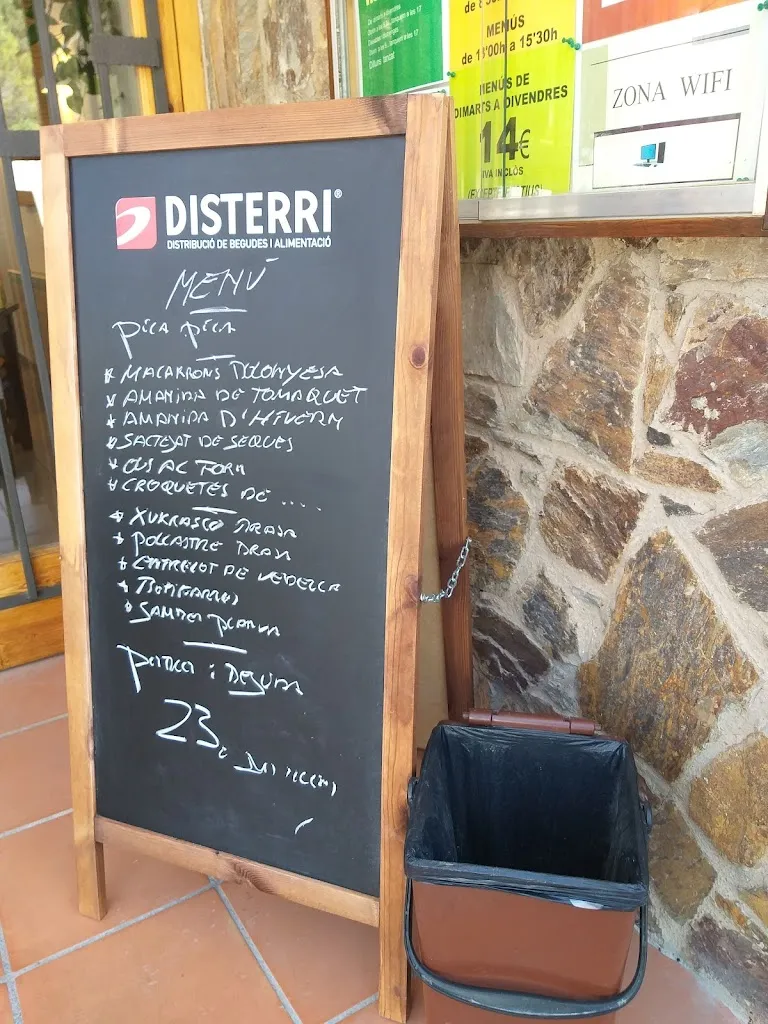 MENÚS
de 13'00h a 15'30h
MENÚS DE
DIMARTS A DIVENDRES
14€
IVA INCLÒS
ZONA WIFI
DISTERRI®
DISTRIBUCIÓ DE BEGUDES I ALIMENTACIÓ
MENÚ
PICA PICA
* MACARRONS BOLONYESA
* AMANIDA DE TOMAQUET
* AMANIDA D'HIVERN
* SALTEJAT DE SEQUES
* OUS AL FORN
* CROQUETES DE ....
* XURRASCO BRASA
* POLLASTRE BRASA
* ENTRECOT DE VEDELLA
* 
* PLANXA
POSTRES i BEGUDA
23€